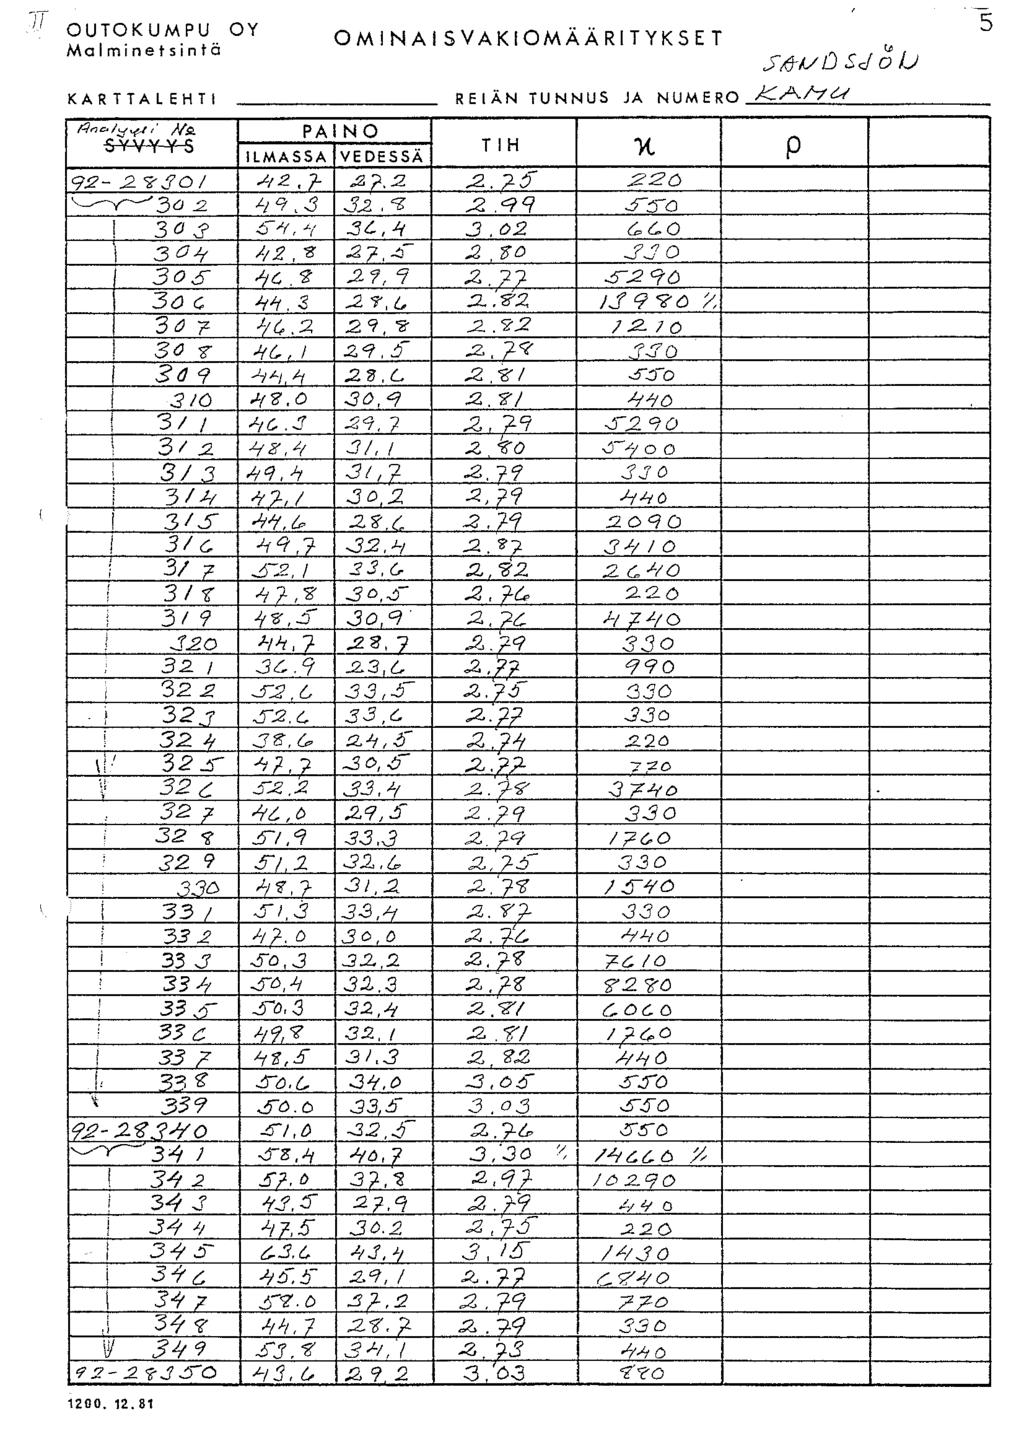 II
OUTOKUMPU OY OMINAISVAKIOMÄÄRITYKSET 5
Malminetsintä
SANDSJÖN
KARTTALEHTI REIÄN TUNNUS JA NUMERO KAMU
Analyysi No PAINO TIH ϰ ρ
SYVYYS ILMASSA VEDESSÄ
92-28301 42,7 27.2 2.75 220
302 49.3 32.8 2.99 550
303 54,4 36,4 3.02 660
304 42,8 27,5 2,80 330
305 46.8 29,9 2.77 5290
306 44.3 28,6 2.82 13980 %
307 46.2 29,8 2.82 1210
308 46,1 29.5 2,78 330
309 44,4 28.6 2.81 550
310 48.0 30,9 2.81 440
311 46.3 29.7 2,79 5290
312 48,4 31,1 2,80 5400
313 49,4 31,7 2.79 330
314 47,1 30,2 2,79 440
315 44,6 28,6 2.79 2090
316 49,7 32,4 2.87 3410
317 52,1 33,6 2,82 2640
318 47,8 30,5 2,76 220
319 48,5 30,9 2,76 4740
320 44,7 28.7 2.79 330
321 36.9 23,6 2,77 990
322 52,6 33,5 2.75 330
323 52.6 33,6 2.77 330
324 38,6 24,5 2,74 220
325 47,7 30,5 2.77 770
326 52,2 33,4 2.78 3740
327 46,0 29,5 2.79 330
328 51,9 33,3 2.79 1760
329 51,2 32,6 2,75 330
330 48,7 31,2 2,78 1540
331 51,3 33,4 2.87 330
332 47.0 30,0 2.76 440
333 50,3 32,2 2,78 7610
334 50,4 32.3 2,78 8280
335 50.3 32,4 2.81 6060
336 49,8 32,1 2.81 1760
337 48,5 31.3 2,82 440
338 50.6 34.0 3,05 550
339 50.0 33,5 3.03 550
92-28340 51,0 32,5 2.76 550
341 58,4 40,7 3,30 % 14660 %
342 57.0 37,8 2,97 10290
343 43,5 27.9 2.79 440
344 47,5 30.2 2,75 220
345 63.6 43,4 3,15 1430
346 45.5 29,1 2.77 6840
347 58.0 37,2 2,79 770
348 44,7 28.7 2.79 330
349 53,8 34,1 2,73 440
92-28350 43,6 29,2 3,03 880
1200. 12.81